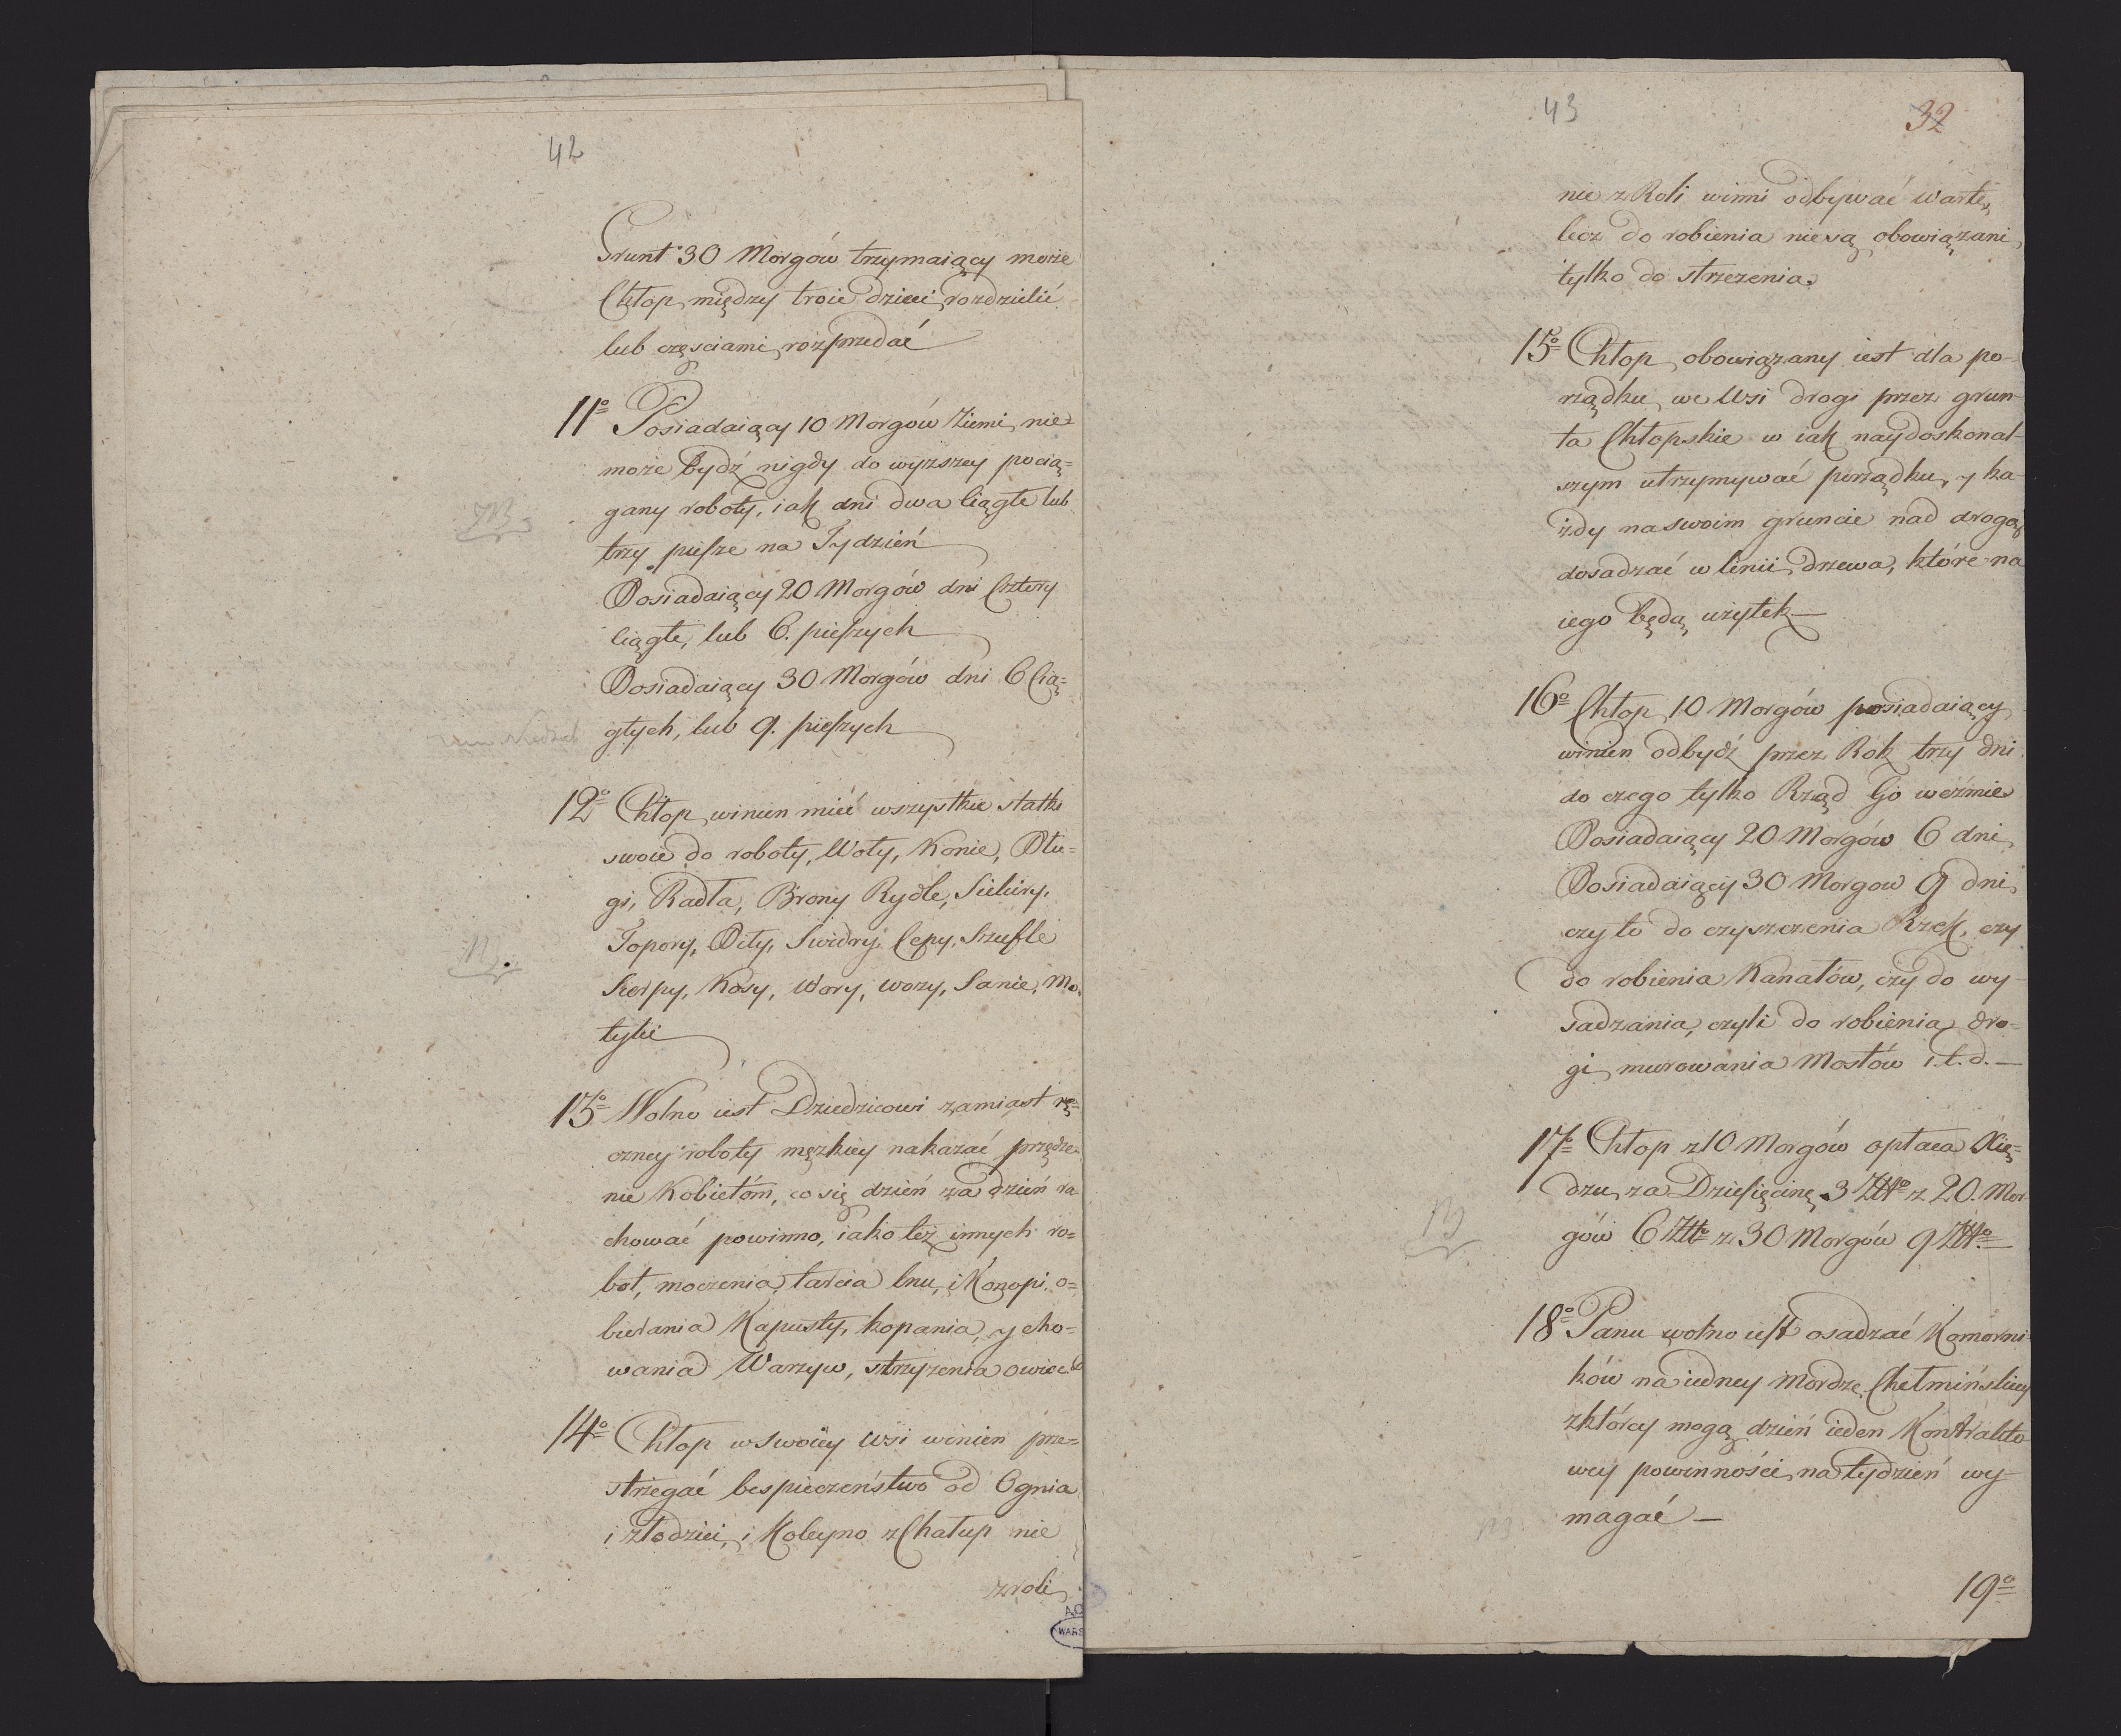 42
Grunt 30 Morgów trzymaiący może
Chłop, między troie dzieci, rozdzielić
lub częsciami, rozprzedać
11º Posiadaiący 10 Morgów Ziemi, nie=
może bydź nigdy do wyższey pocią=
gany roboty, iak dni dwa Ciągłe lub
trzy piesze na Tydzień
Posiadaiący 20 Morgów dni Cztery
Ciągłe, lub 6. pieszych
Posiadaiący 30 Morgów dni 6 Cią=
głych, lub 9. pieszych
12º Chłop, winien mieć wszystkie statki
swoie do roboty, Woły, Konie, Płu=
gi, Radła, Brony Rydle, Siekiry,
Topory, Piły, Swidry, Cepy, Szufle
Sierpy, Kosy, Wory, wozy, Sanie, Mo=
tyki
13º Wolno iest Dziedzicowi zamiast rę=
czney roboty męzkiey nakazać przędze=
nie Kobietóm, co się dzień za dzień ra
chować powinno, iako też innych ro=
bot, moczenia, tarcia lnu, i Konopi, o=
bierania Kapusty, kopania, y cho=
wania Warzyw, strzyżenia owiec
14º Chłop w swoiey Wsi winien prze=
strzegać bespieczeństwo od Ognia
i złodziei, i Koleyno z Chałup nie
z roli
43
32
nie z Roli winni odbywać Wartę,
lecz do robienia nie są obowiązani,
tylko do strzeżenia.
15º Chłop, obowiązany iest dla po-
rządku, we Wsi drogi przez grun-
ta Chłopskie w iak naydoskonal-
szym utrzymywać porządku, y ka-
żdy na swoim gruncie nad drogą
dosadzać w linii, drzewa, które na
iego będą użytek —
16º Chłop, 10 Morgów posiadaiący
winien odbydź przez Rok trzy dni
do czego tylko Rząd Go weźmie
Posiadaiący 20 Morgów 6 dni,
Posiadaiący 30 Morgow 9 dni,
czy to do czyszczenia Rzek, czy
do robienia Kanałów, czy do wy-
sadzania, czyli do robienia dro-
gi, murowania Mostów i.t.d. —
17º Chłop z 10 Morgów opłaca Xię=
dzu, za Dziesięcinę 3 Złło z 20. Mor
gów 6 Złło z 30 Morgów 9 Złło. —
18º Panu wolno iest osadzać Komorni
ków na iedney Mordze, Chełmińskiey
z którey mogą dzień ieden Kontrakto-
wey powinności, na tydzień wy-
magać —
19º